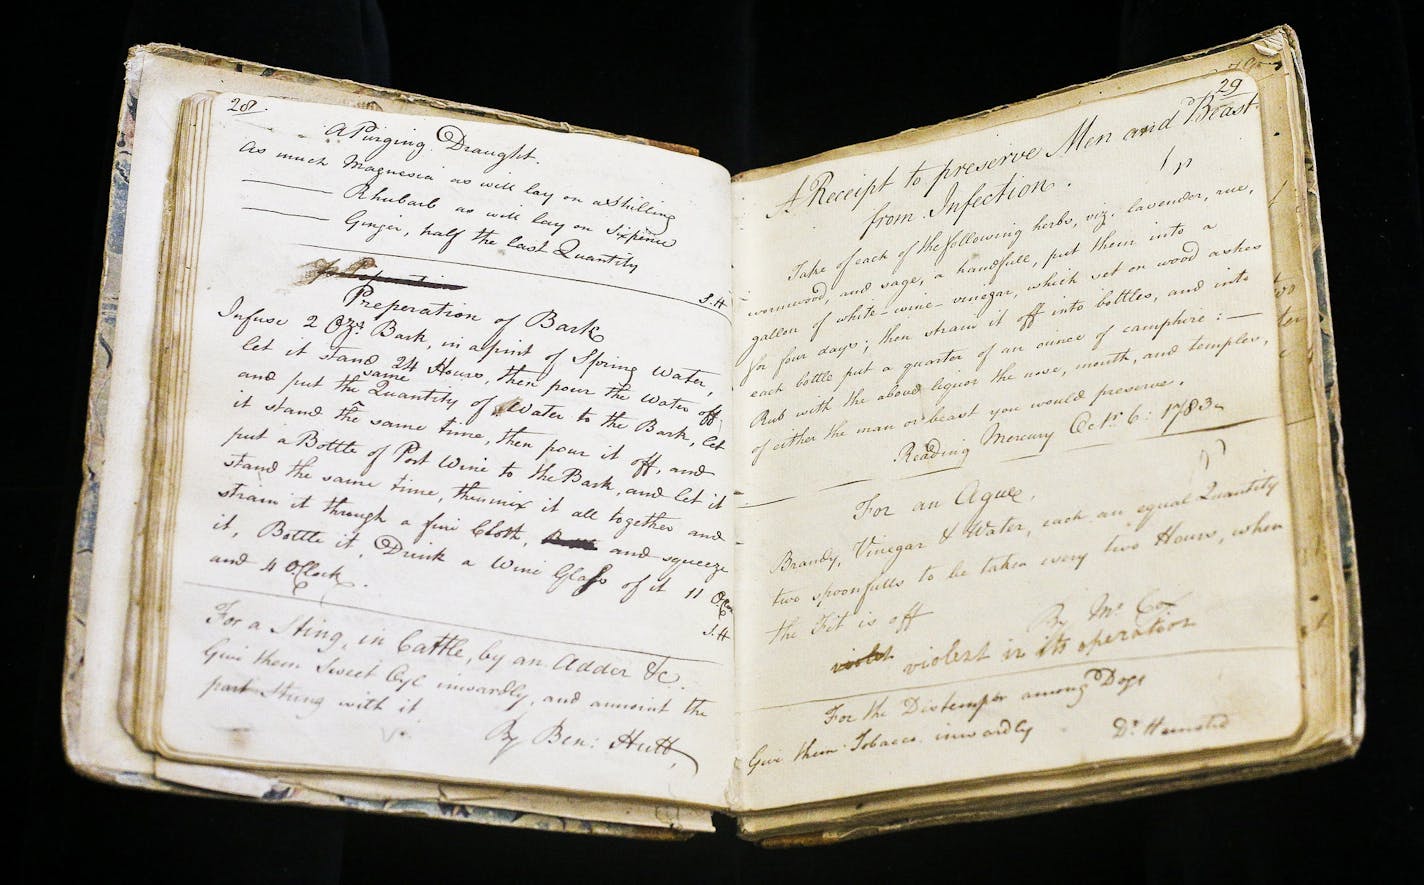 28.
A Purging Draught.
As much Magnesia as will lay on a Shilling
Rhubarb as will lay on Sixpence
Ginger, half the last Quantity
S.H
Preperation of Bark
Infuse 2 Ozs Bark, in a pint of Spring Water,
let it stand 24 Hours, then pour the Water off,
and put the same Quantity of Water to the Bark, let
it stand the same time, then pour it off, and
put a Bottle of Port Wine to the Bark, and let it
stand the same time, then mix it all together and
strain it through a fine Cloth, and squeeze
it, Bottle it, Drink a Wine Glass of it 11
and 4 OClock.
S.H
For a Sting, in Cattle, by an Adder &c.
Give them Sweet Oyl inwardly, and annoint the
part Stung with it
By Ben: Hutt,
29
A Receipt to preserve Men and Beast
from Infection.
Take of each of the following herbs, viz. lavender, rue,
wormwood, and sage, a handfull, put them into a
gallon of white-wine-vinegar, which set on wood ashes
for four days; then strain it off into bottles, and into
each bottle put a quarter of an ounce of camphire: —
Rub with the above liquor the nose, mouth, and temples,
of either the man or beast you would preserve.
Reading Mercury Octr 6: 1783
For an Ague,
Brandy, Vinegar & Water, each an equal Quantity
two spoonfulls to be taken every two Hours, when
the Fit is off
By Mr Cox
violent violent in its operation
For the Distemper among Dogs
Give them Tobacco inwardly